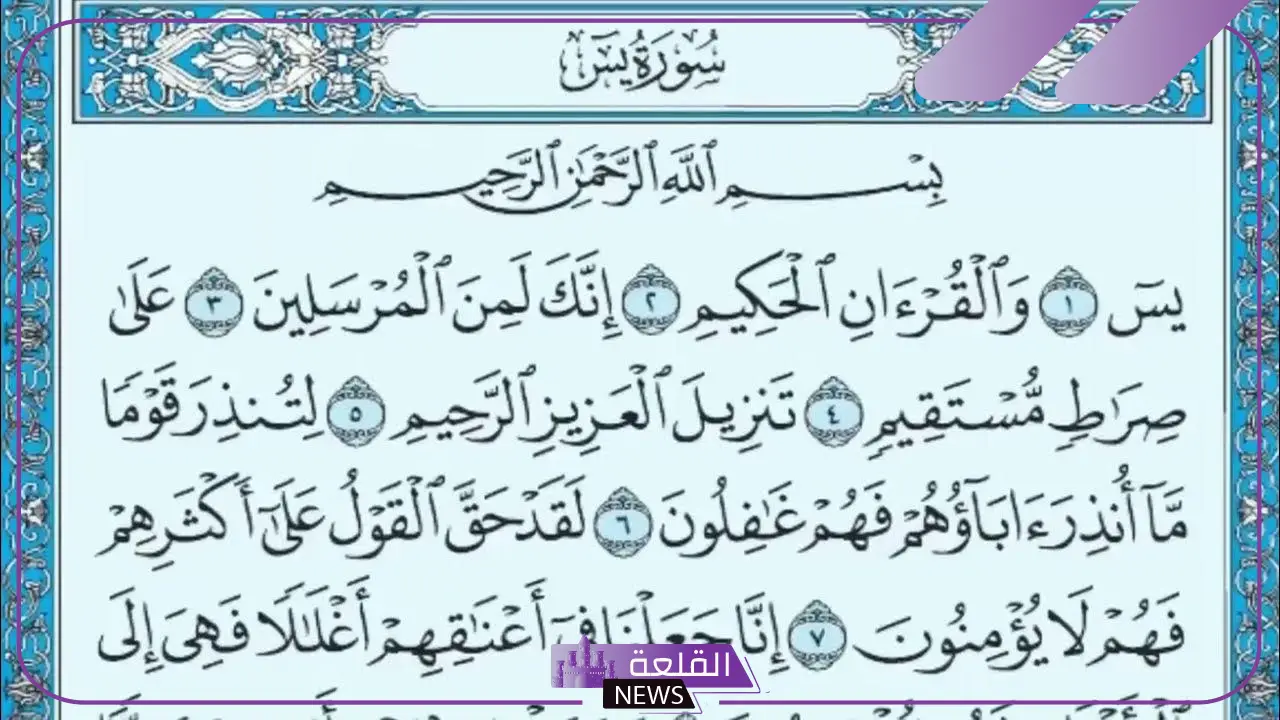 سُورَةُ يسٓ
بِسْمِ ٱللَّهِ ٱلرَّحْمَٰنِ ٱلرَّحِيمِ
يسٓ ١ وَٱلْقُرْءَانِ ٱلْحَكِيمِ ٢ إِنَّكَ لَمِنَ ٱلْمُرْسَلِينَ ٣ عَلَىٰ
صِرَٰطٍ مُّسْتَقِيمٍ ٤ تَنزِيلَ ٱلْعَزِيزِ ٱلرَّحِيمِ ٥ لِتُنذِرَ قَوْمًا
مَّآ أُنذِرَ ءَابَآؤُهُمْ فَهُمْ غَٰفِلُونَ ٦ لَقَدْ حَقَّ ٱلْقَوْلُ عَلَىٰٓ أَكْثَرِهِمْ
فَهُمْ لَا يُؤْمِنُونَ ٧ إِنَّا جَعَلْنَا فِىٓ أَعْنَٰقِهِمْ أَغْلَٰلًا فَهِىَ إِلَى
القلعة
NEWS